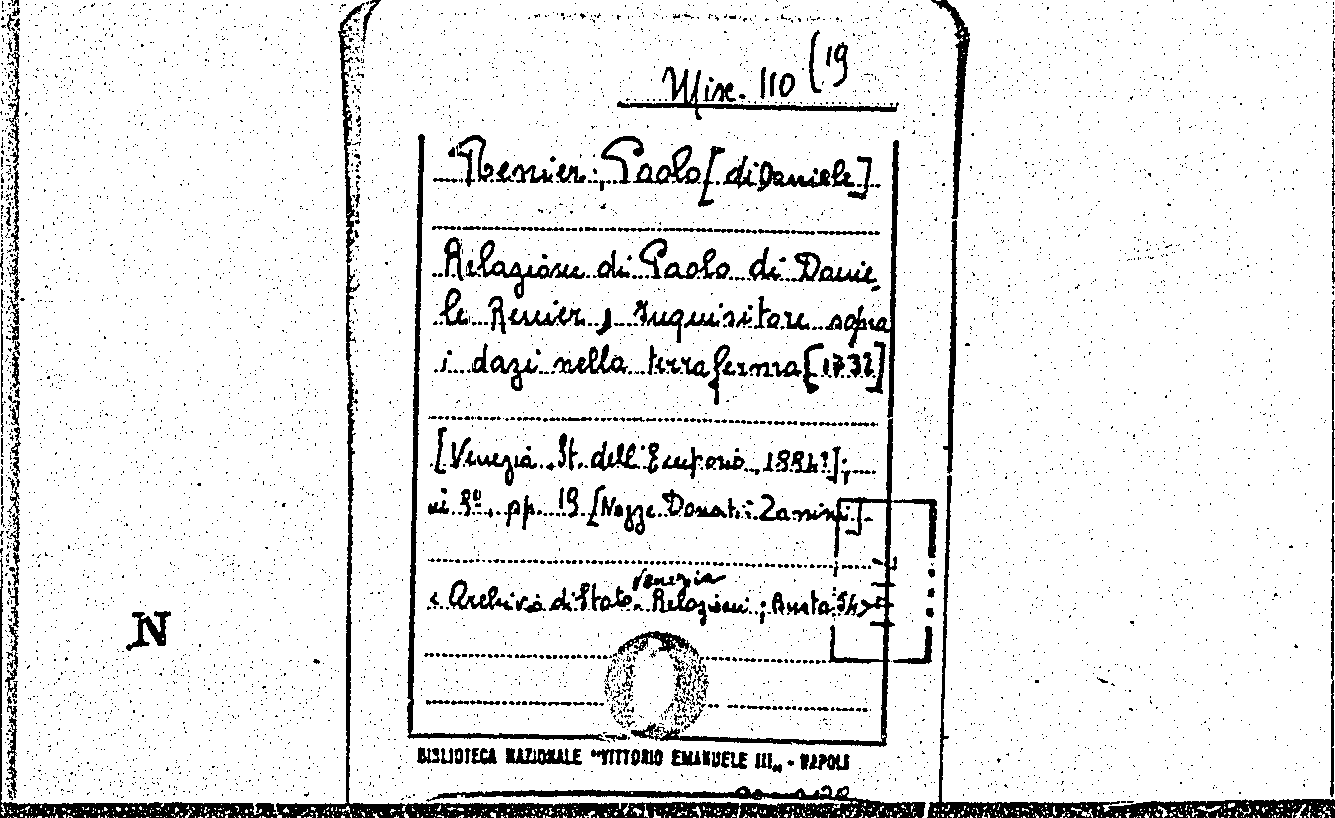 Misc. 110 (19
Renier, Paolo [di Daniele]
Relazione di Paolo di Danie
le Renier, Inquisitore sopra
i dazi nella terraferma [1732]
[Venezia, St. dell'Emporio, 1884?];
in 8º, pp. 19 [Nozze Donati: Zannini].
Venezia
< Archivio di Stato. Relazioni; Busta 54>
BIBLIOTECA NAZIONALE "VITTORIO EMANUELE III„ - NAPOLI
N